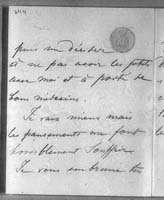 puis me décider
à ne pas avoir les petits
avec moi et à porté de
bons médecins.
Je vais mieux mais
les pansements me font
horriblement souffrir
Je vous embrasse